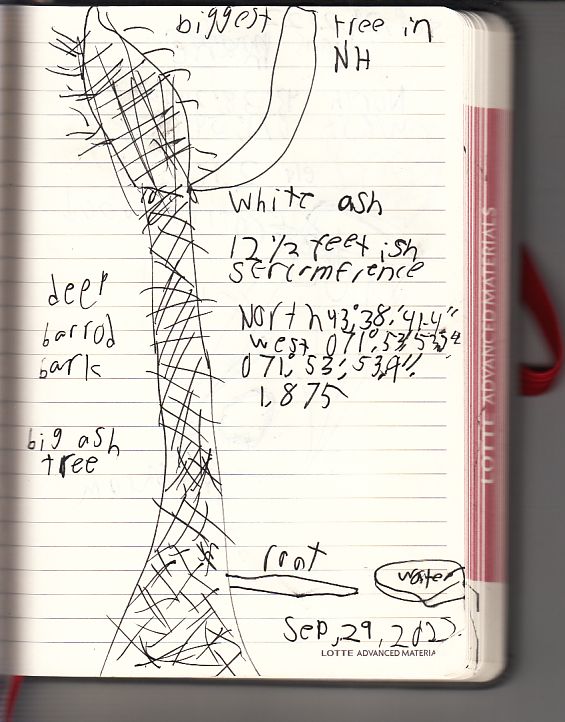 biggest tree in
NH
White ash
12 1/2 feet ish
sercrmfrence
deep
barrod
bark
North 43°38'41.4"
west
071°53'53.9"
1,875
big ash
tree
root
water
Sep, 29, 202
LOTTE ADVANCED MATERIA
LOTTE ADVANCED MATERIALS